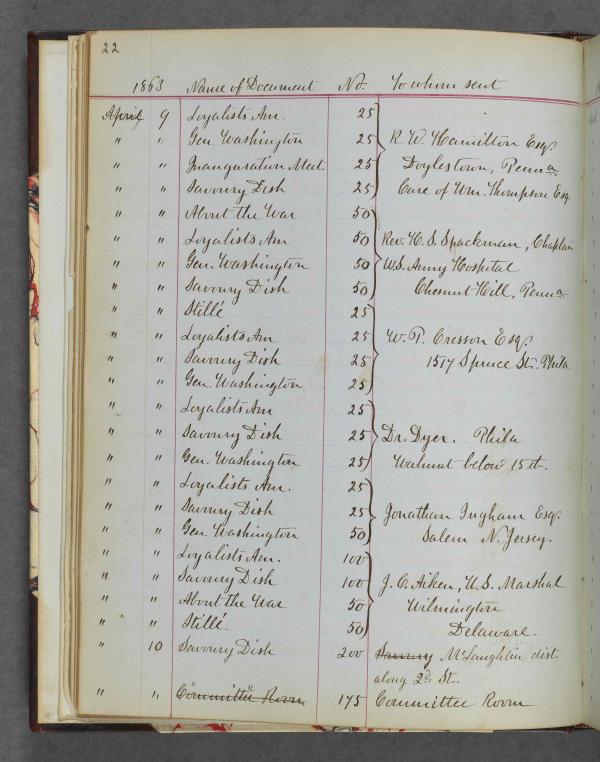 22
1863 Name of Document No. To whom sent
April 9 Loyalists Am. 25
" " Gen. Washington 25 R. W. Hamilton Esq.
" " Inauguration Meet. 25 Doylestown, Penna
" " Savoury Dish 25 Care of Wm. Thompson Esq.
" " About the War 50
" " Loyalists Am 50 Rev. H. S. Spackman, Chaplain
" " Gen. Washington 50 U.S. Army Hospital
" " Savoury Dish 50 Chesnut Hill, Penna
" " Stillé 25
" " Loyalists Am 25 W. P. Cresson Esq.
" " Savoury Dish 25 1517 Spruce St. Phila
" " Gen. Washington 25
" " Loyalists Am 25
" " Savoury Dish 25 Dr. Dyer. Phila
" " Gen. Washington 25 Walnut below 15th.
" " Loyalists Am. 25
" " Savoury Dish 25 Jonathan Ingham Esq.
" " Gen. Washington 50 Salem N. Jersey.
" " Loyalists Am. 100
" " Savoury Dish 100 J. C. Aiken, U.S. Marshal
" " About the War 50 Wilmington
" " Stillé 50 Delaware.
" 10 Savoury Dish 200 Savoury McLaughlin dist.
along 2d. St.
" " "Committee" Room 175 Committee Room